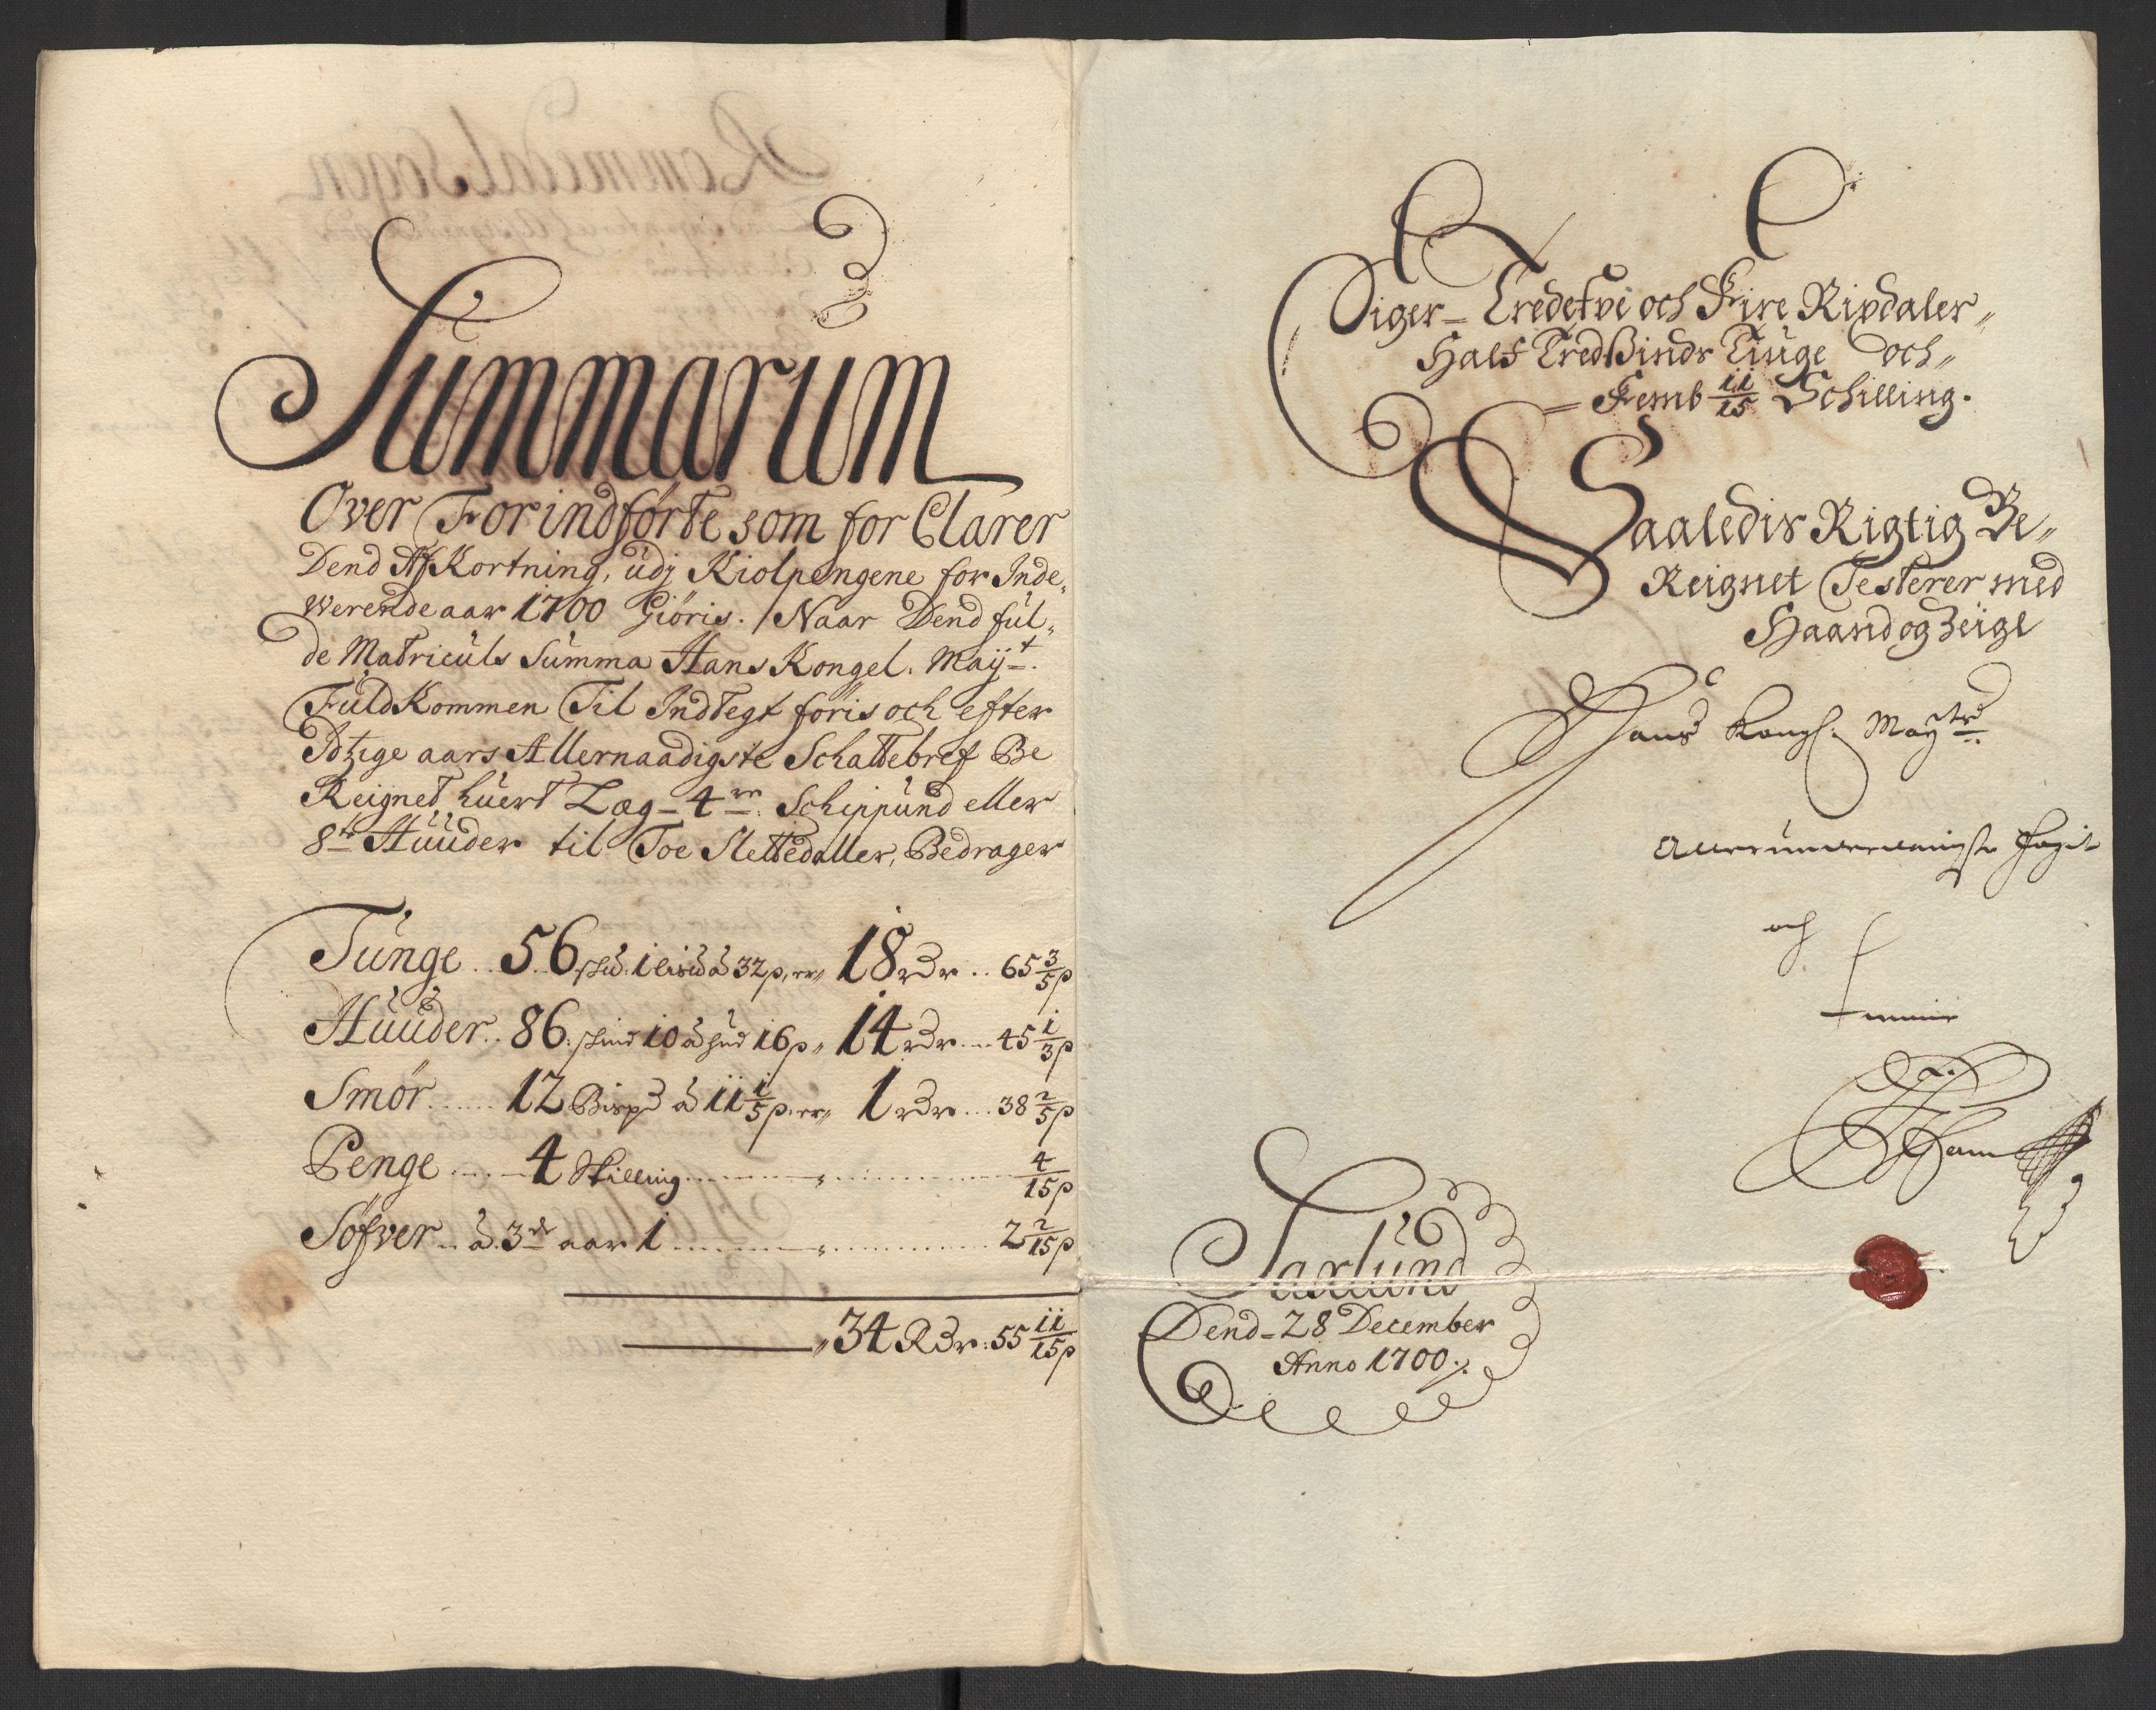 Summarum
Over Forindførte som for Clarer
Dend AfKortning, udj Kiolpengene for Inde„
Werende aar 1700 Giöris. / Naar Dend ful„
de Matriculs Summa Hans Kongel. Mayt.
FuldKommen Til Indtegt föris och efter
Idtzige aars Allernaadigste Schattebref Be
Reignet huert Læg - 4re Schippund eller
8te Huuder til Toe Slettedaller, Bedrager
Tunge .. 56 1 à 32 β, er„ 18 Rdr .. 65 3/5 β
Huuder .. 86 10 à hud 16 β „ 14 Rdr .... 45 1/3 β
Smör ..... 12 Bispd à 11 1/5 β. er„ 1 Rdr ... 38 2/5 β
Penge ..... 4 Skilling ......... „ ......... 4/15 β
Söfver .. à 3de aar 1 ......... „ ......... 2 2/15 β
„ 34 Rdr : 55 11/15 β
Siger - Tredetvi och Fire Rixdaler„
Half Tredsinds Tiuge och„
= Femb 11/15 Schilling.
Saaledis Rigtig Be„
Reignet Testerer med
Haand og Zeigl
Hans Kongl. Maytz
och
Saxlund
Dend - 28 December
Anno 1700 ./.